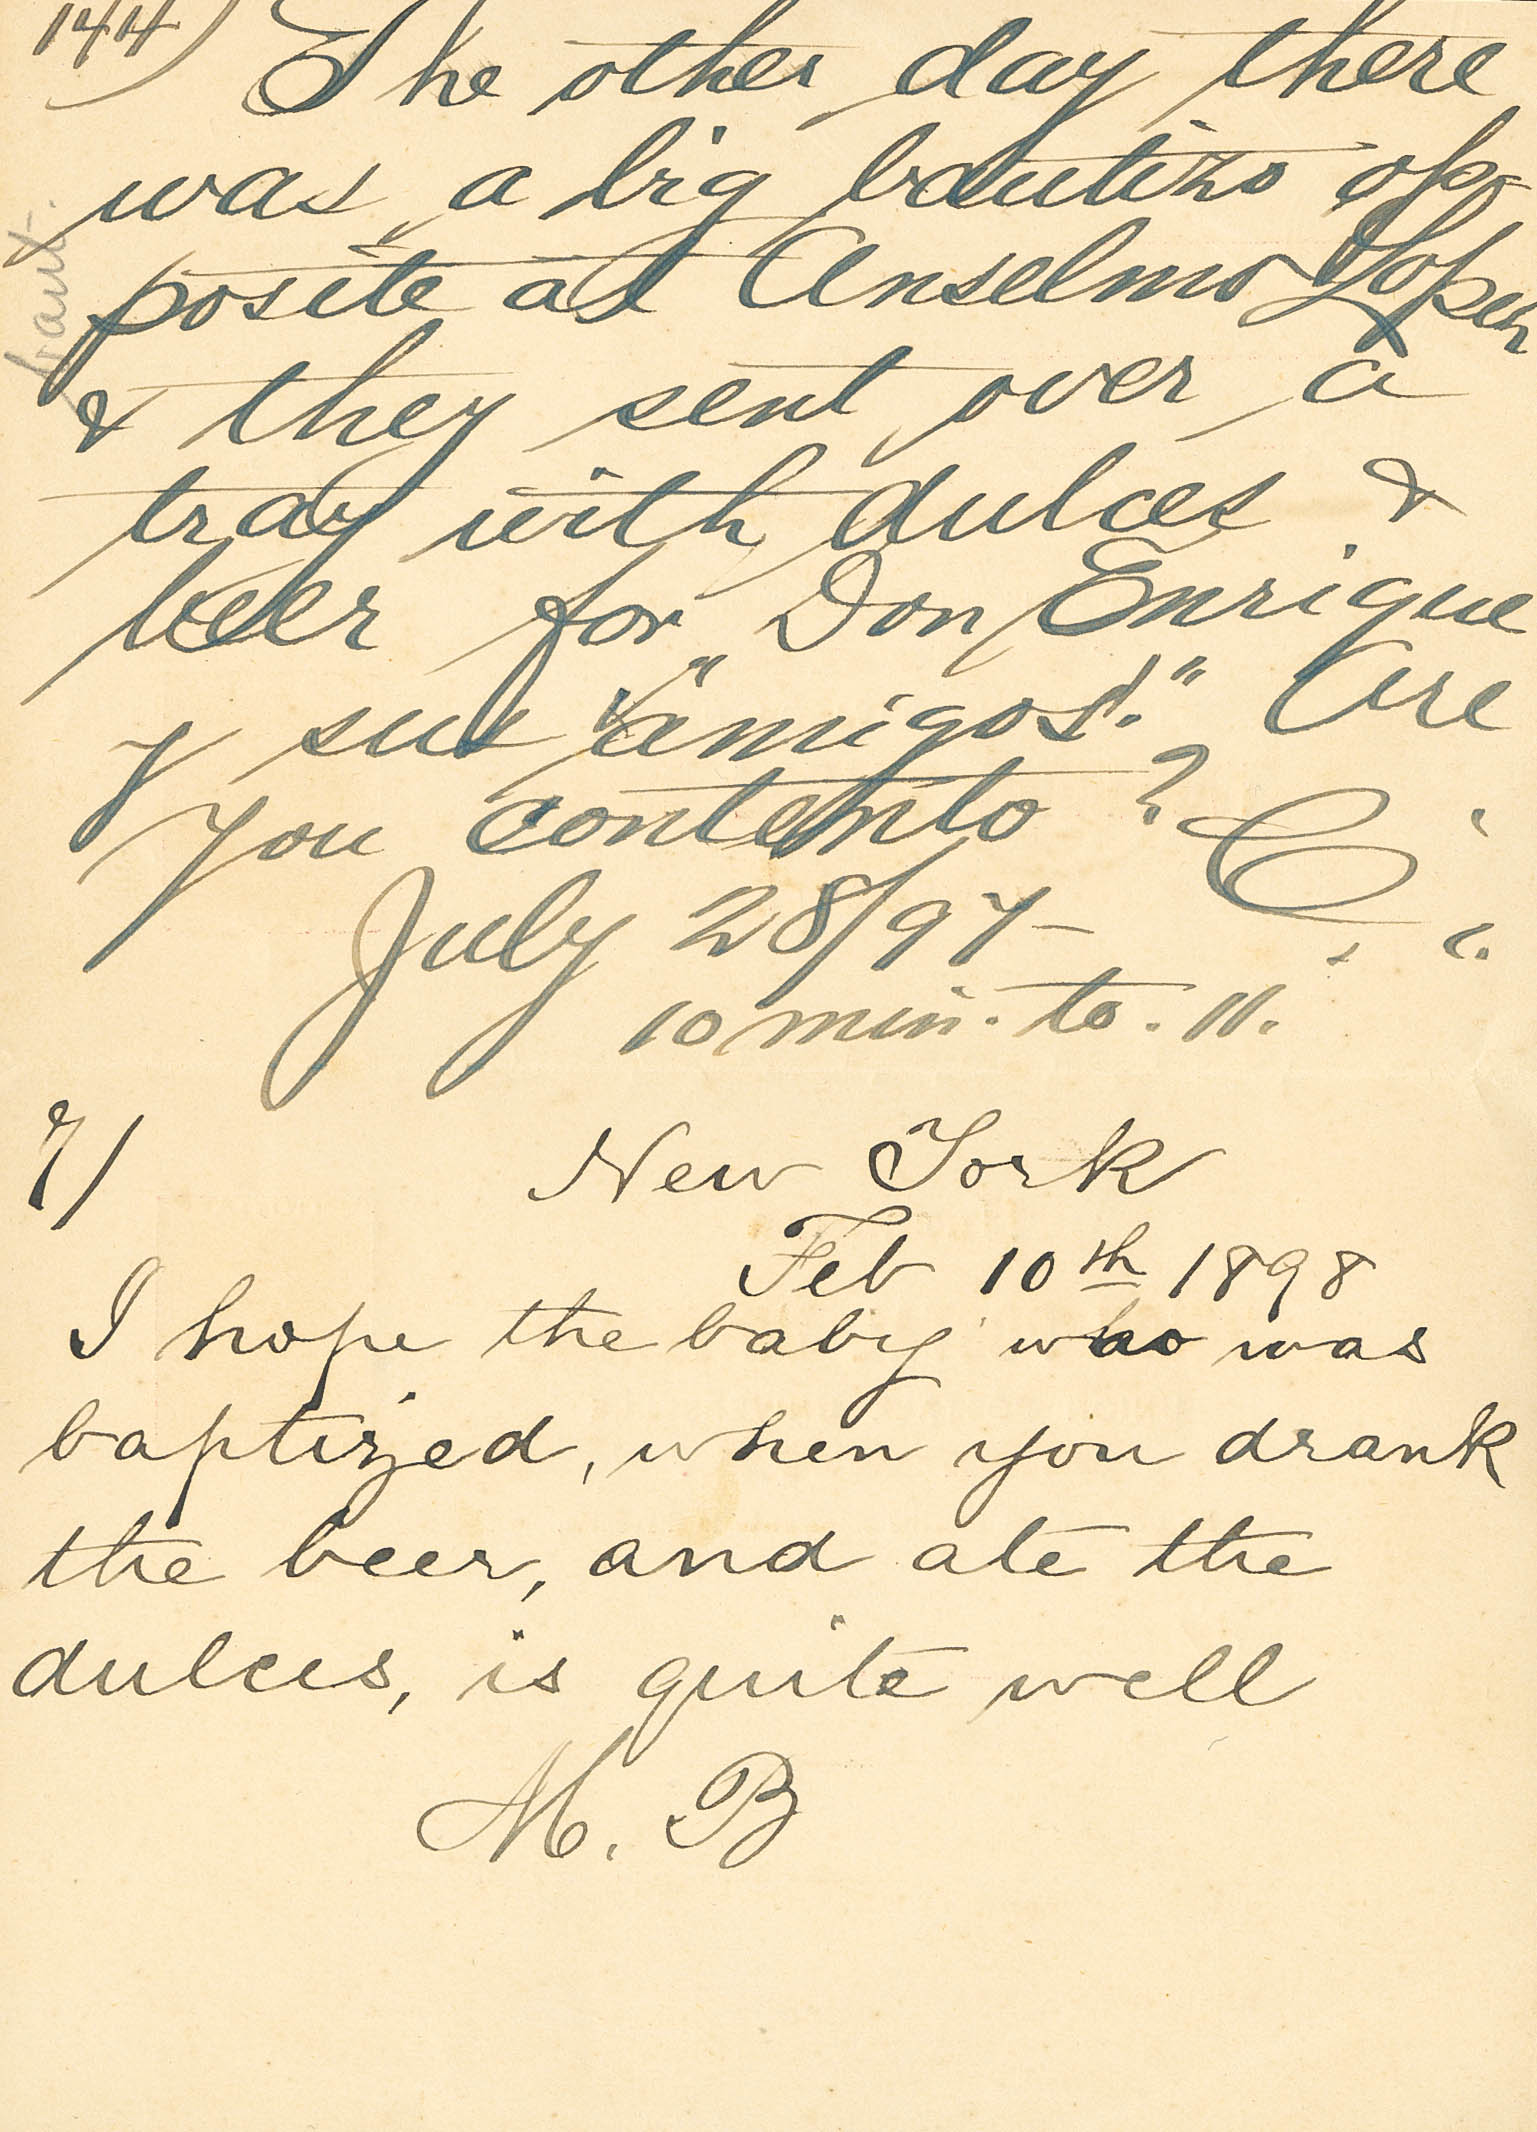 144) The other day there
was a big bautizo op-
posite at Anselmo Lopez
& they sent over a
tray with dulces &
beer for "Don Enrique
y sus "amigos!." Are
you contento?
July 28/97-
10 min. to. 11.
7/ New York
Feb 10th 1898
I hope the baby who was
baptized, when you drank
the beer, and ate the
dulces, is quite well
M. B